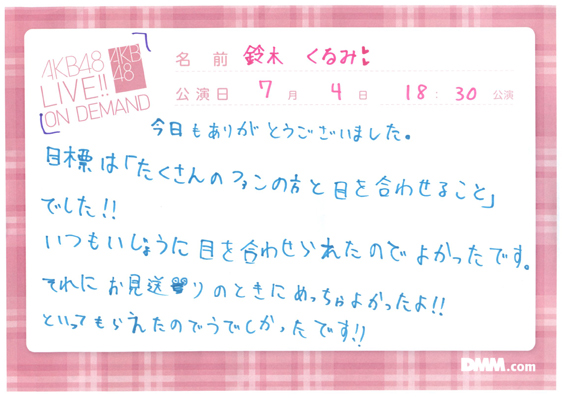 AKB48
LIVE!!
ON DEMAND
AKB
48
名前 鈴木 くるみ
公演日 7月 4日 18:30 公演
今日もありがとうございました。
目標は「たくさんのファンの方と目を合わせること」
でした!!
いつもいじょうに目を合わせられたのでよかったです。
それにお見送りのときにめっちゃよかったよ!!
といってもらえたのでうでしかったです!!
DMM.com